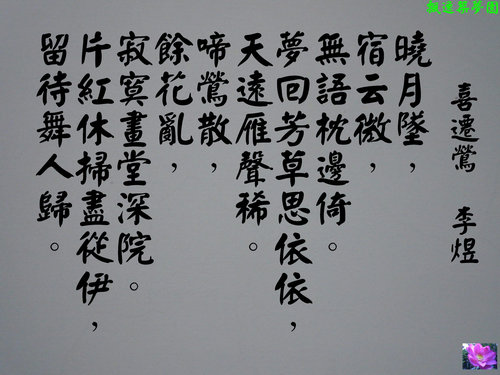 夢園
喜遷鶯 李煜
曉月墜，
宿云微，
無語枕邊倚。
夢回芳草思依依，
天遠雁聲稀。
啼鶯散，
餘花亂，
寂寞畫堂深院。
片紅休掃盡從伊，
留待舞人歸。